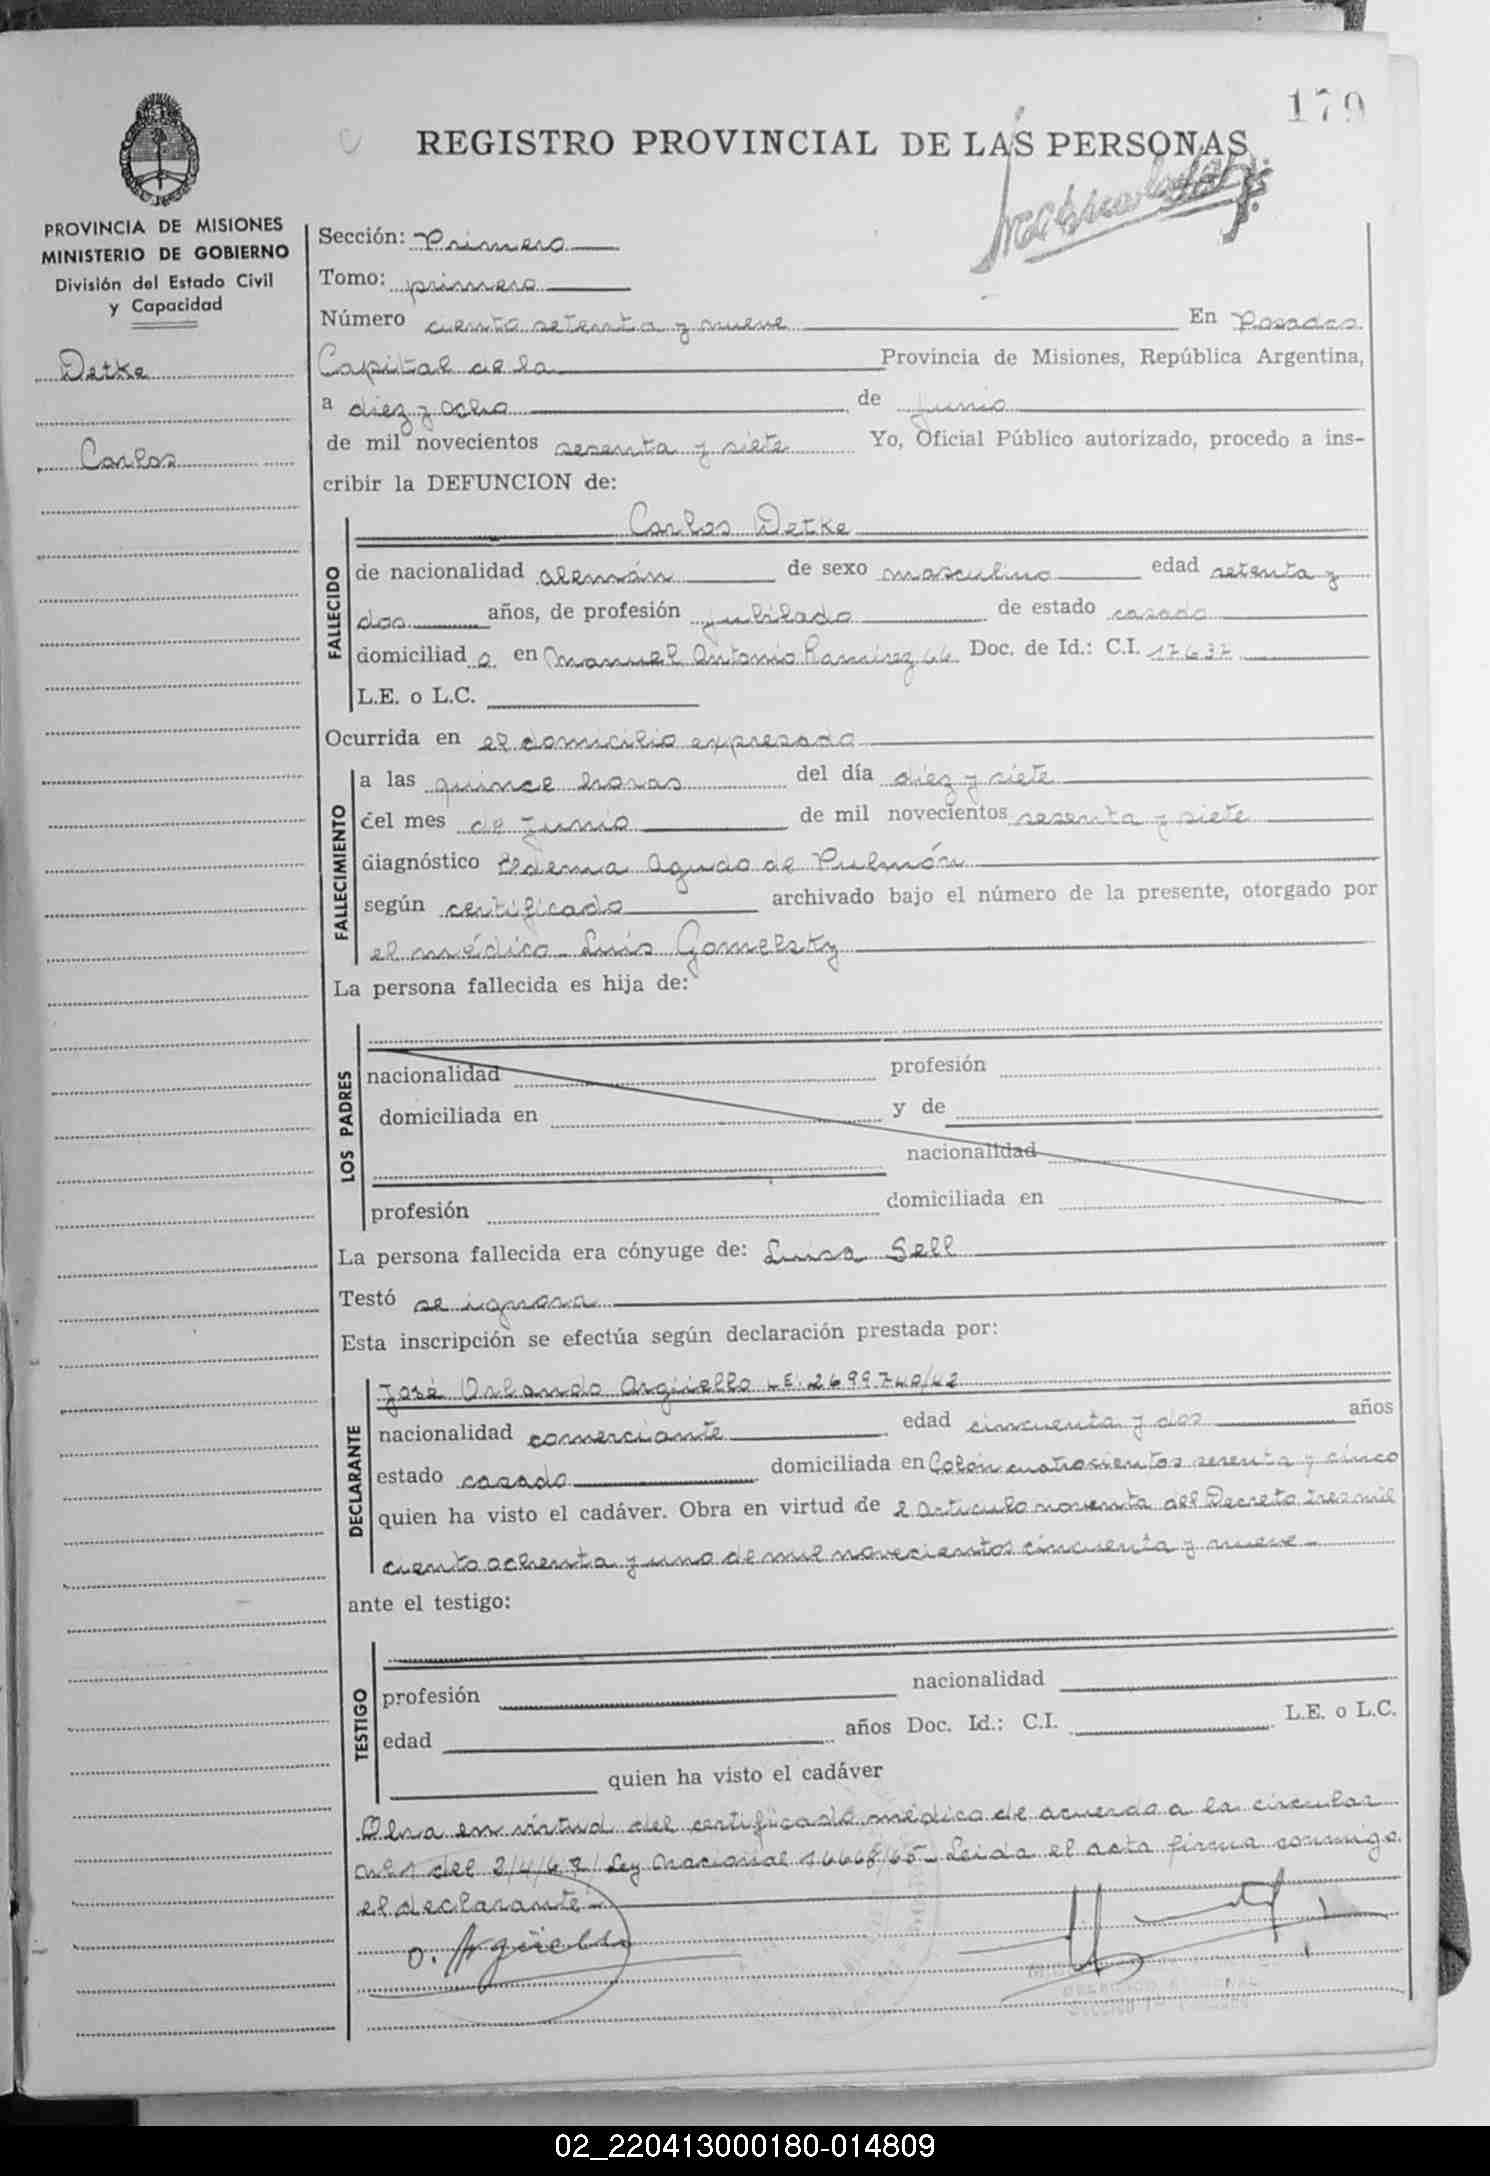 179
REGISTRO PROVINCIAL DE LAS PERSONAS
PROVINCIA DE MISIONES
MINISTERIO DE GOBIERNO
División del Estado Civil
y Capacidad
Detke
Carlos
Sección: Primera
Tomo: primero
Número ciento setenta y nueve En Posadas
Capital de la Provincia de Misiones, República Argentina,
a diez y ocho de junio
de mil novecientos sesenta y siete Yo, Oficial Público autorizado, procedo a ins-
cribir la DEFUNCION de:
Carlos Detke
FALLECIDO
de nacionalidad alemán de sexo masculino edad setenta y
dos años, de profesión jubilado de estado casado
domiciliad o en Manuel Antonio Ramírez 66 Doc. de Id.: C.I. 17637
L.E. o L.C.
Ocurrida en el domicilio expresado
FALLECIMIENTO
a las quince horas del día diez y siete
del mes de junio de mil novecientos sesenta y siete
diagnóstico Edema Agudo de Pulmón
según certificado archivado bajo el número de la presente, otorgado por
el médico Luis Gomelsky
La persona fallecida es hija de:
LOS PADRES
nacionalidad profesión
domiciliada en y de
nacionalidad
profesión domiciliada en
La persona fallecida era cónyuge de: Luisa Sell
Testó se ignora
Esta inscripción se efectúa según declaración prestada por:
DECLARANTE
José Orlando Argüello L.E. 2699740/42
nacionalidad comerciante edad cincuenta y dos años
estado casado domiciliada en Colón cuatrocientos sesenta y cinco
quien ha visto el cadáver. Obra en virtud de l artículo noventa del Decreto tres mil
ciento ochenta y uno de mil novecientos cincuenta y nueve
ante el testigo:
TESTIGO
profesión nacionalidad
edad años Doc. Id.: C.I. L.E. o L.C.
quien ha visto el cadáver
Obra en virtud del certificado médico de acuerdo a la circular
del 2/4/62/ Ley Nacional 16668/65 Leída el acta firma conmigo
el declarante
O. Argüello
02_220413000180-014809